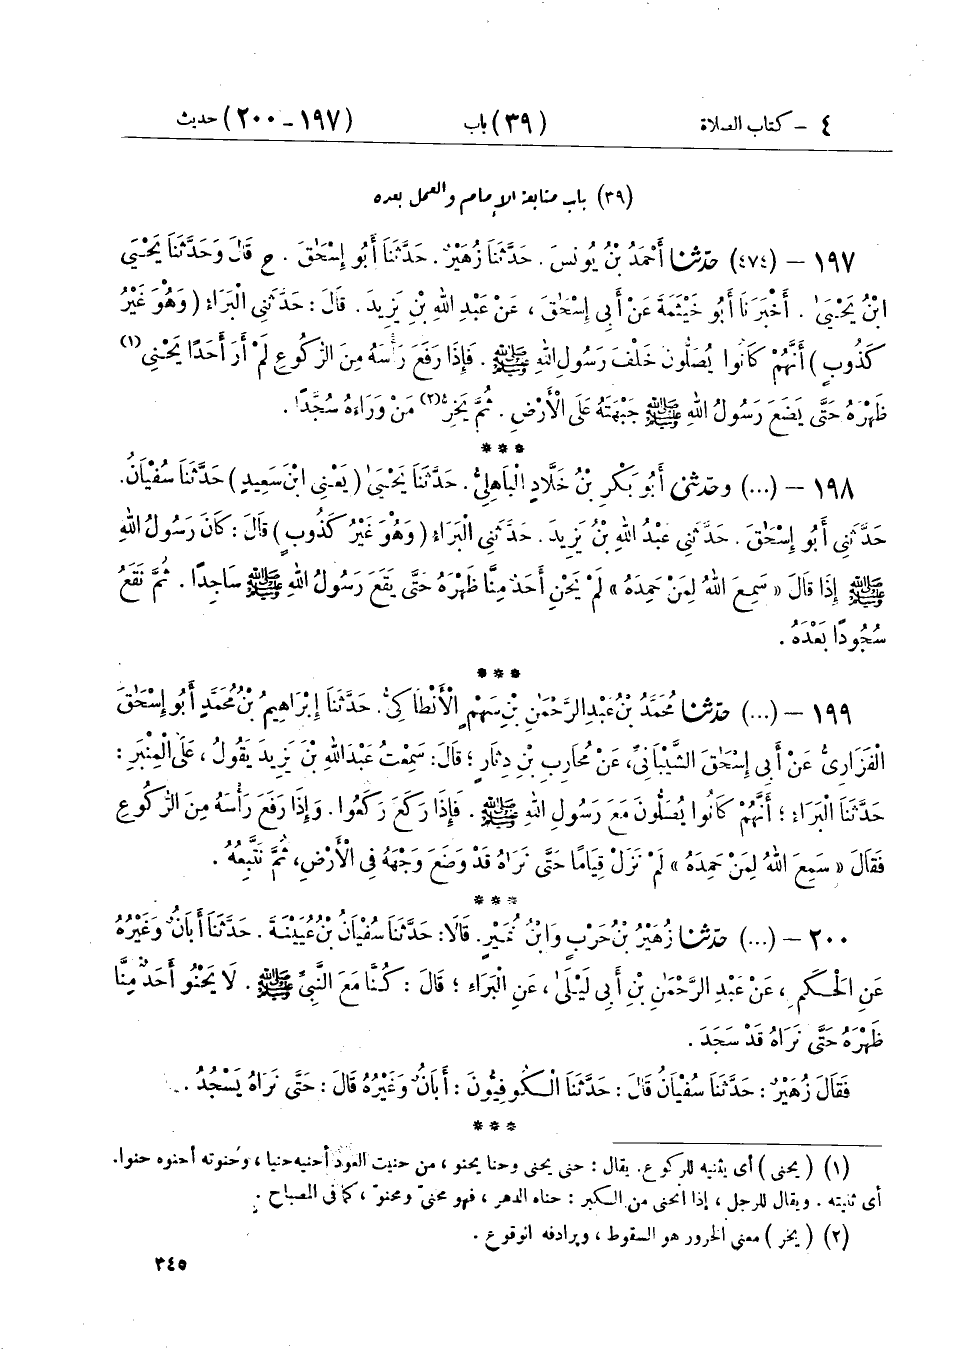 ٤ - كتاب الصلاة (٣٩) باب (١٩٧ - ٢٠٠) حديث
(٣٩) باب متابعة الإمام والعمل بعده
١٩٧ - (٤٧٤) حَدَّثَنَا أَحْمَدُ بْنُ يُونُسَ . حَدَّثَنَا زُهَيْرٌ . حَدَّثَنَا أَبُو إِسْحَاقَ . ح قَالَ وَحَدَّثَنَا يَحْيَى
ابْنُ يَحْيَىٰ . أَخْبَرَنَا أَبُو خَيْثَمَةَ عَنْ أَبِي إِسْحَاقَ ، عَنْ عَبْدِ اللهِ بْنِ يَزِيدَ . قَالَ : حَدَّثَنِي الْبَرَاءُ ( وَهُوَ غَيْرُ
كَذُوبٍ ) أَنَّهُمْ كَانُوا يُصَلُّونَ خَلْفَ رَسُولِ اللهِ ﷺ . فَإِذَا رَفَعَ رَأْسَهُ مِنَ الرُّكُوعِ لَمْ أَرَ أَحَدًا يَحْنِي (١)
ظَهْرَهُ حَتَّى يَضَعَ رَسُولُ اللهِ ﷺ جَبْهَتَهُ عَلَى الْأَرْضِ . ثُمَّ يَخِرُّ (٢) مَنْ وَرَاءَهُ سُجَّدًا .
***
١٩٨ - (...) وحَدَّثَنِي أَبُو بَكْرِ بْنُ خَلَّادٍ الْبَاهِلِيُّ . حَدَّثَنَا يَحْيَىٰ ( يَعْنِي ابْنَ سَعِيدٍ ) حَدَّثَنَا سُفْيَانُ .
حَدَّثَنِي أَبُو إِسْحَاقَ . حَدَّثَنِي عَبْدُ اللهِ بْنُ يَزِيدَ . حَدَّثَنِي الْبَرَاءُ ( وَهُوَ غَيْرُ كَذُوبٍ ) قَالَ : كَانَ رَسُولُ اللهِ
ﷺ إِذَا قَالَ « سَمِعَ اللهُ لِمَنْ حَمِدَهُ » لَمْ يَحْنِ أَحَدٌ مِنَّا ظَهْرَهُ حَتَّى يَقَعَ رَسُولُ اللهِ ﷺ سَاجِدًا . ثُمَّ نَقَعُ
سُجُودًا بَعْدَهُ .
***
١٩٩ - (...) حَدَّثَنَا مُحَمَّدُ بْنُ عَبْدِ الرَّحْمَٰنِ بْنِ سَهْمٍ الْأَنْطَاكِيُّ . حَدَّثَنَا إِبْرَاهِيمُ بْنُ مُحَمَّدٍ أَبُو إِسْحَاقَ
الْفَزَارِيُّ عَنْ أَبِي إِسْحَاقَ الشَّيْبَانِيِّ ، عَنْ مُحَارِبِ بْنِ دِثَارٍ ؛ قَالَ : سَمِعْتُ عَبْدَ اللهِ بْنَ يَزِيدَ يَقُولُ ، عَلَى الْمِنْبَرِ :
حَدَّثَنَا الْبَرَاءُ ؛ أَنَّهُمْ كَانُوا يُصَلُّونَ مَعَ رَسُولِ اللهِ ﷺ . فَإِذَا رَكَعَ رَكَعُوا . وَإِذَا رَفَعَ رَأْسَهُ مِنَ الرُّكُوعِ
فَقَالَ « سَمِعَ اللهُ لِمَنْ حَمِدَهُ » لَمْ نَزَلْ قِيَامًا حَتَّى نَرَاهُ قَدْ وَضَعَ وَجْهَهُ فِي الْأَرْضِ ، ثُمَّ نَتَّبِعُهُ .
***
٢٠٠ - (...) حَدَّثَنَا زُهَيْرُ بْنُ حَرْبٍ وَابْنُ نُمَيْرٍ . قَالَا : حَدَّثَنَا سُفْيَانُ بْنُ عُيَيْنَةَ . حَدَّثَنَا أَبَانُ وَغَيْرُهُ
عَنِ الْحَكَمِ ، عَنْ عَبْدِ الرَّحْمَٰنِ بْنِ أَبِي لَيْلَىٰ ، عَنِ الْبَرَاءِ ؛ قَالَ : كُنَّا مَعَ النَّبِيِّ ﷺ . لَا يَحْنُو أَحَدٌ مِنَّا
ظَهْرَهُ حَتَّى نَرَاهُ قَدْ سَجَدَ .
فَقَالَ زُهَيْرٌ : حَدَّثَنَا سُفْيَانُ قَالَ : حَدَّثَنَا الْكُوفِيُّونَ : أَبَانُ وَغَيْرُهُ قَالَ : حَتَّى نَرَاهُ يَسْجُدُ .
***
(١) ( يحنى ) أى يثنيه للركوع . يقال : حنى يحنى وحنا يحنو ، من حنيت العود أحنيه حنيا ، وحنوته أحنوه حنوا .
أى ثنيته . ويقال للرجل ، إذا انحنى من الكبر : حناه الدهر ، فهو محنىّ ومحنوّ ، كما فى المصباح .
(٢) ( يخر ) معنى الخرور هو السقوط ، ويرادفه الوقوع .
٣٤٥